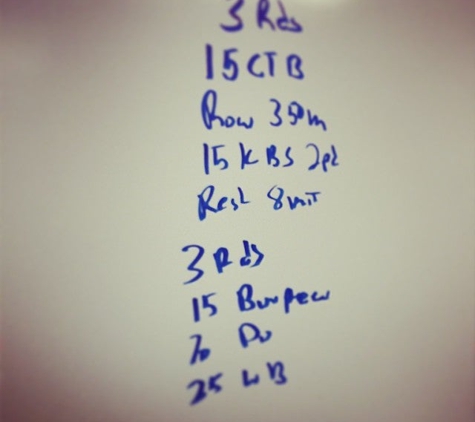 3 Rds
15 CTB
Row 350m
15 KBS 2pd
Rest 8mit
3 Rds
15 Burpees
70 Du
25 WB